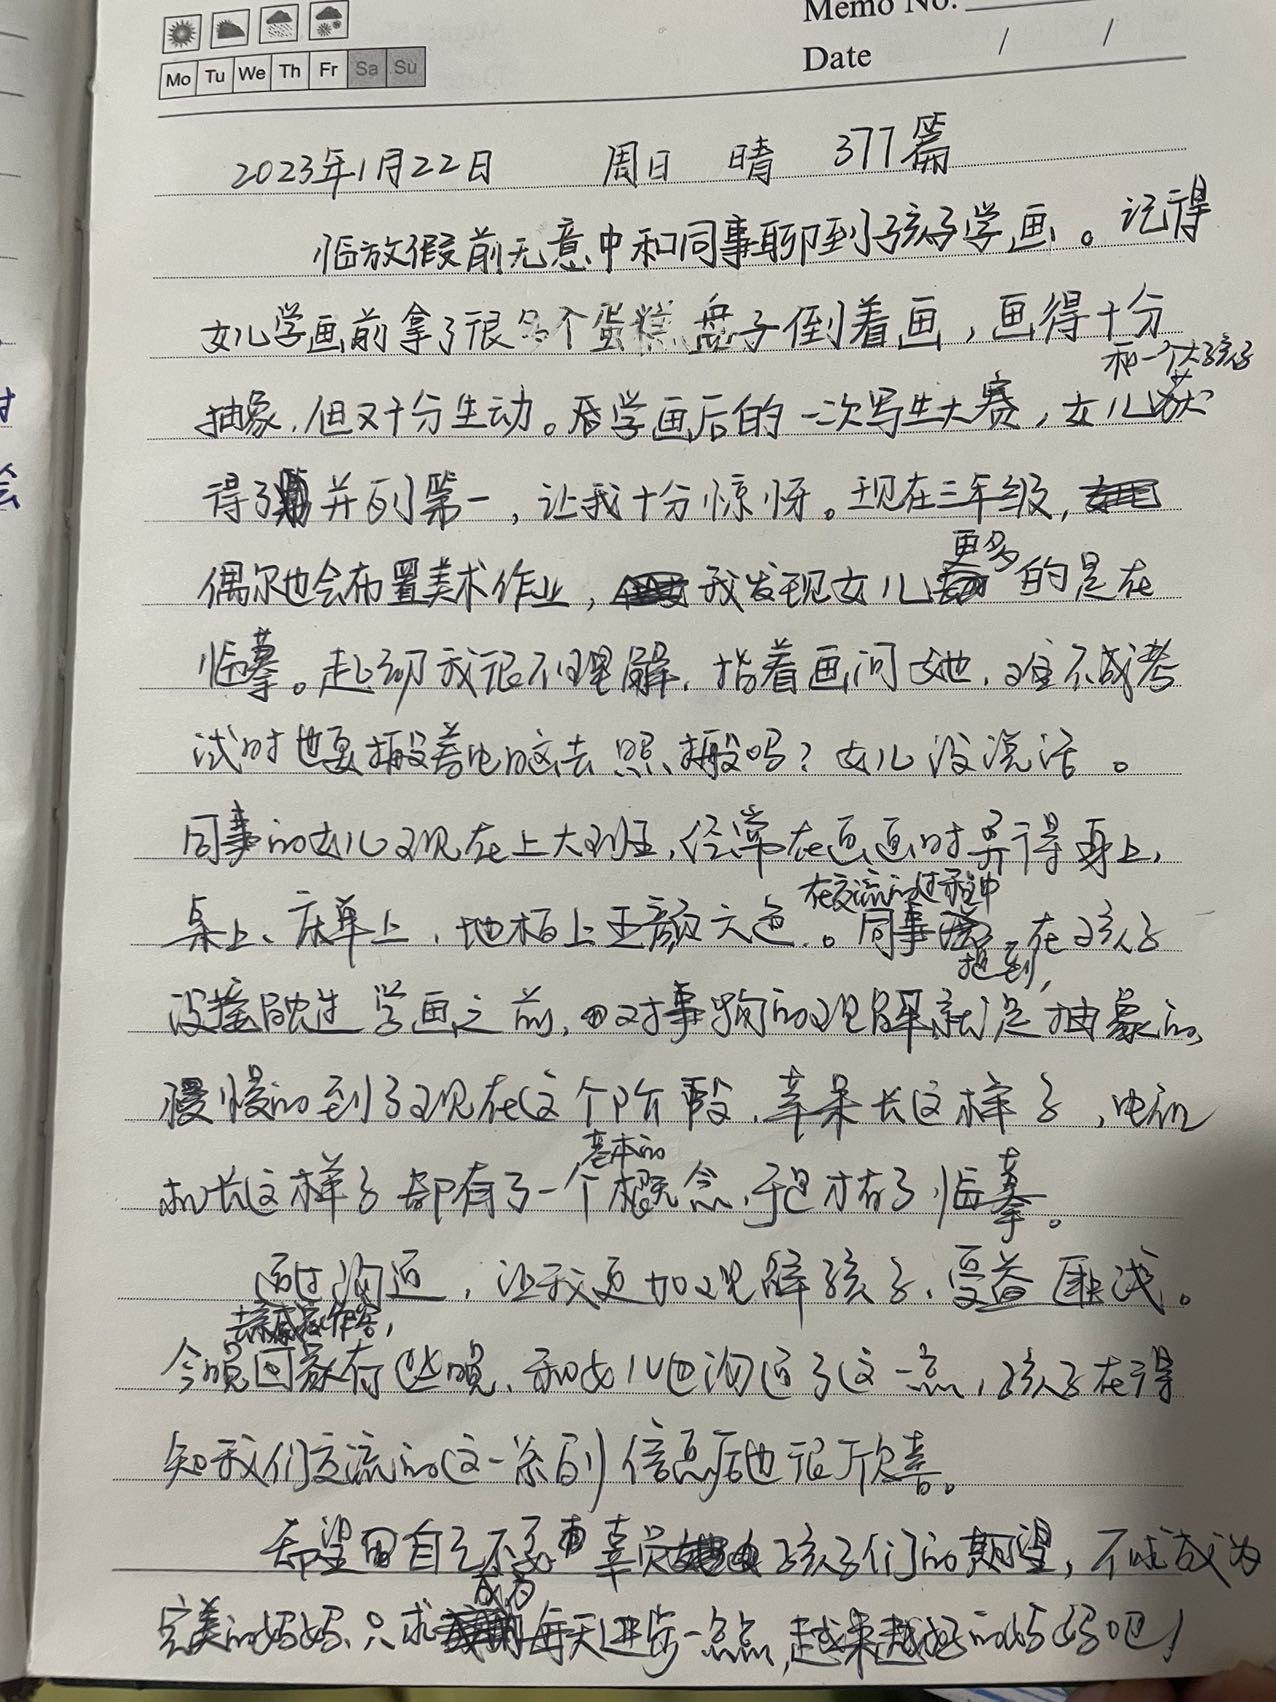 Memo No.
Mo Tu We Th Fr Sa Su
Date / /
2023年1月22日 周日 晴 377篇
临放假前无意中和同事聊到孩子学画。记得
女儿学画前拿了很多个蛋糕盘子倒着画，画得十分
抽象，但又十分生动。后学画后的一次写生大赛，女儿和一个大孩子获
得了并列第一，让我十分惊讶。现在三年级，
偶尔也会布置美术作业，我发现女儿更多的是在
临摹。起初我很不理解，指着画问她，难不成考
试时也要搬着电脑去照搬吗？女儿没说话。
同事的女儿现在上大班，经常在画画时弄得身上，
桌上、床单上，地板上五颜六色。在交流的过程中同事提到，在孩子
没接触过学画之前，对事物的理解就是抽象的，
慢慢的到了现在这个阶段，苹果长这样子，电视
机长这样子都有了一个基本的概念，于是才有了临摹。
通过沟通，让我更加理解孩子，受益匪浅。
今晚回家有些晚，和女儿也沟通了这一点，孩子在得
知我们交流的这一系列信息后也很欣喜。
希望自己不要辜负孩子们的期望，不求成为
完美的妈妈，只求成为每天进步一点点，越来越好的妈妈吧！